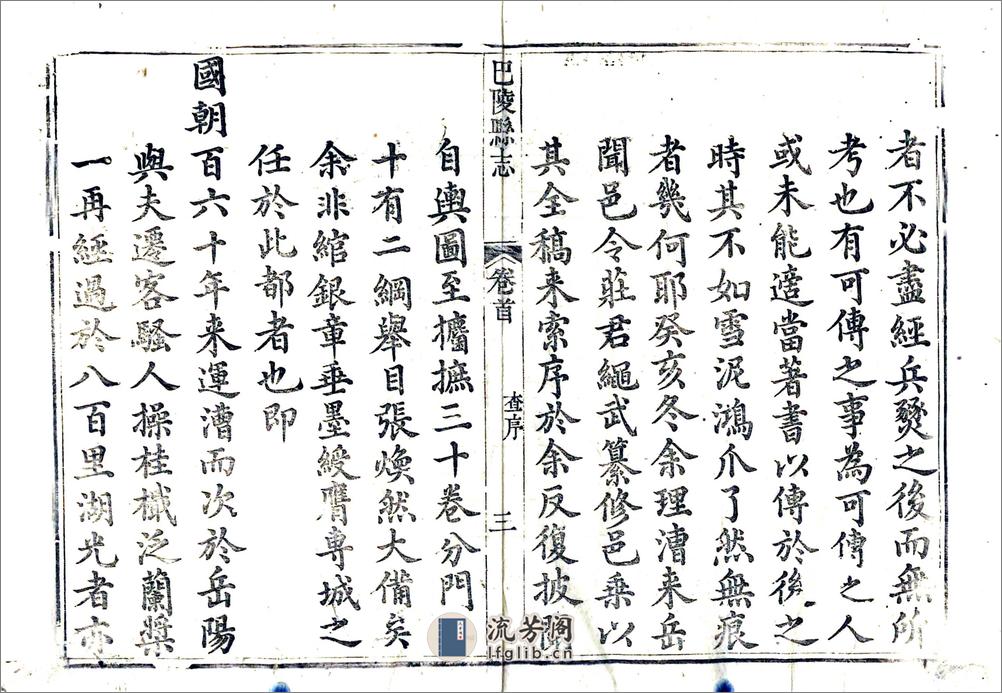 者不必盡經兵燹之後而無所
考也有可傳之事為可傳之人
或未能適當著書以傳於後之
時其不如雪泥鴻爪了然無痕
者幾何耶癸亥冬余理漕来岳
聞邑令莊君繩武纂修邑乗以
其全稿来索序於余反復披閱
巴陵縣志
卷首
查序
三
自輿圖至攟摭三十卷分門
十有二綱舉目張煥然大備矣
余非綰銀章垂墨綬膺専城之
任於此都者也即
國朝百六十年来運漕而次於岳陽
與夫遷客騷人操桂檝泛蘭槳
一再經過於八百里湖光者亦
流芳阁
lfglib.cn